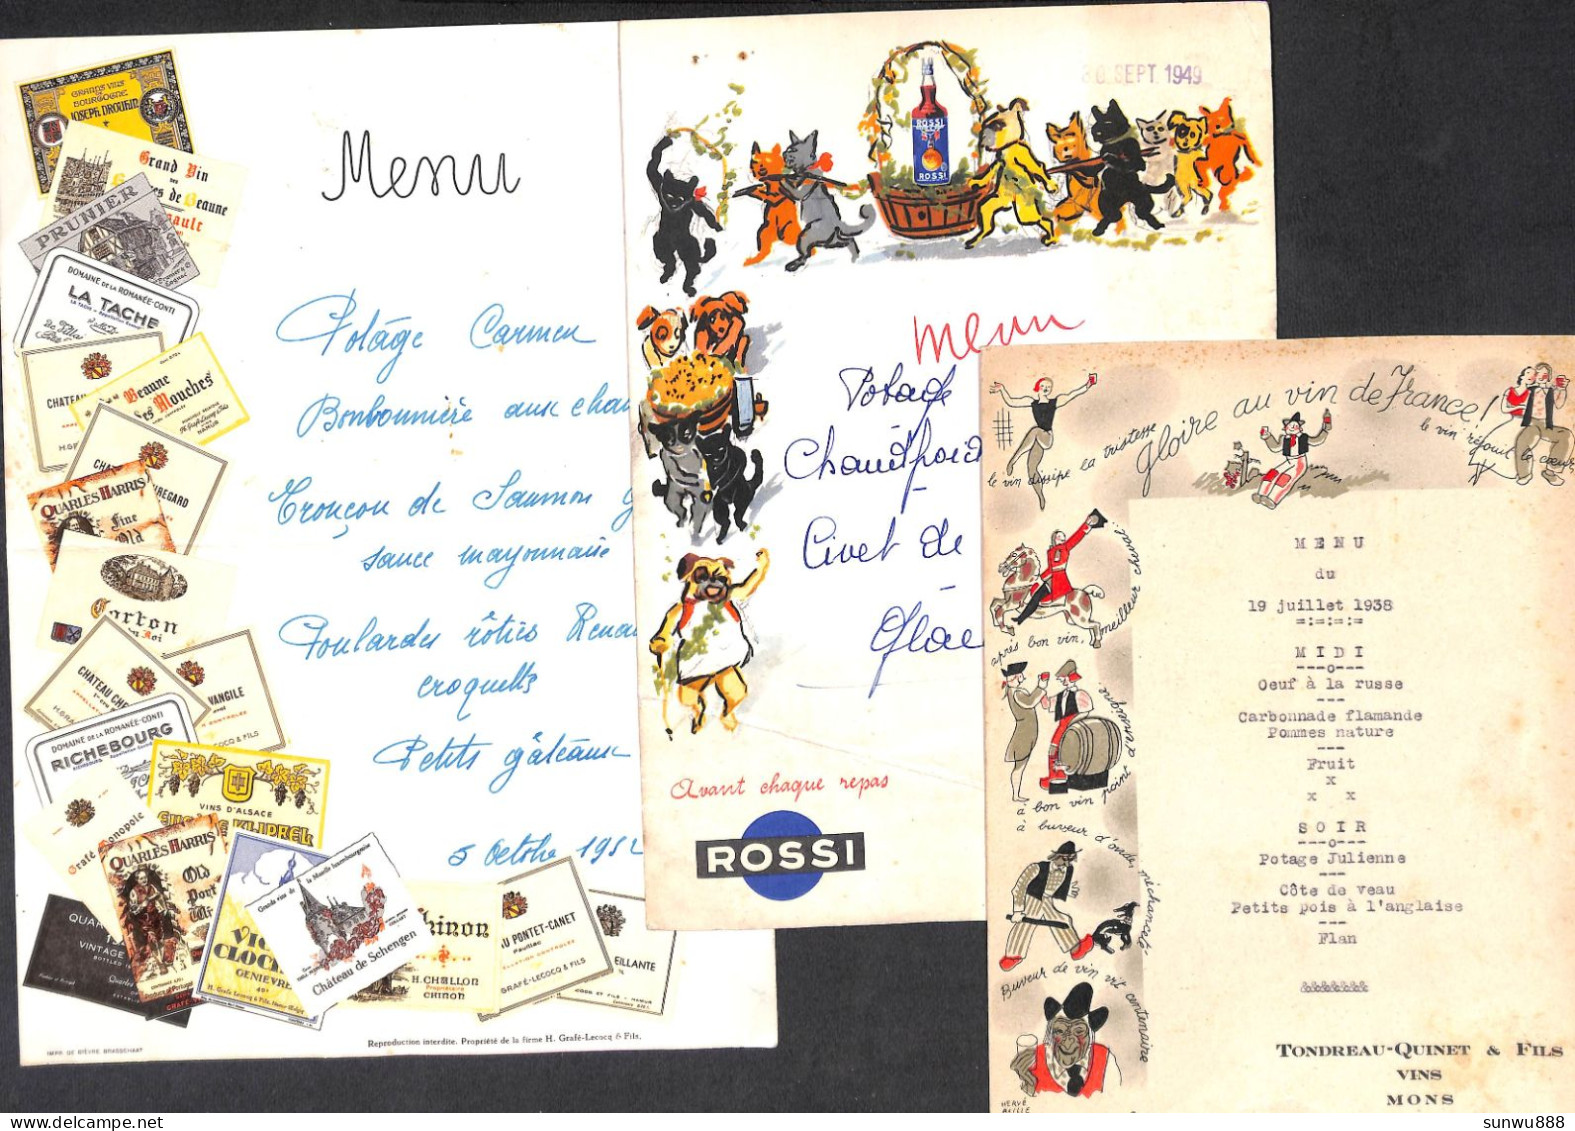 GRANDS VINS
DE
BOURGOGNE
JOSEPH DROUHIN
Grand Vin
des
de Beaune
PRUNIER
Cognac
DOMAINE DE LA ROMANÉE-CONTI
LA TACHE
CHATEAU
Beaune
des Mouches
NAMUR
QUARLES HARRIS
Fine
Old
Corton
CHATEAU CHE
VANGILE
DOMAINE DE LA ROMANÉE-CONTI
RICHEBOURG
VINS D'ALSACE
QUARLES HARRIS
Old
Port
CLOCK
GENIEVRE
Grands vins de la Moselle luxembourgeoise
Château de Schengen
hinon
H. CHALLON
Propriétaire
CHINON
U PONTET-CANET
Pauillac
GRAFÉ-LECOCQ & FILS
EILLANTE
VINTAGE
IMPR. DE BIÈVRE BRASSCHAAT
Reproduction interdite. Propriété de la firme H. Grafé-Lecocq & Fils.
Menu
Potage Carmen
Bonbonnière aux cham
Tronçon de Saumon g
sauce mayonnaise
Poularde rôties Renai
croquettes
Petits gâteaux
5 Octobre 1952
30 SEPT. 1949
ROSSI
ROSSI
menu
Potage
Chauffroid
Civet de
Glace
Avant chaque repas
ROSSI
gloire au vin de France!
le vin dissipe la tristesse
le vin réjouit le cœur
après bon vin, meilleur cheval.
à bon vin point d'enseigne.
à buveur d'onde, méchanceté
Buveur de vin vit centenaire
HERVÉ
BAILLE
MENU
du
19 juillet 1938
=:=:=:=
MIDI
---o---
Oeuf à la russe
---
Carbonnade flamande
Pommes nature
---
Fruit
x
x x
SOIR
---o---
Potage Julienne
---
Côte de veau
Petits pois à l'anglaise
---
Flan
&&&&&&&
TONDREAU-QUINET & FILS
VINS
MONS
sunwu888